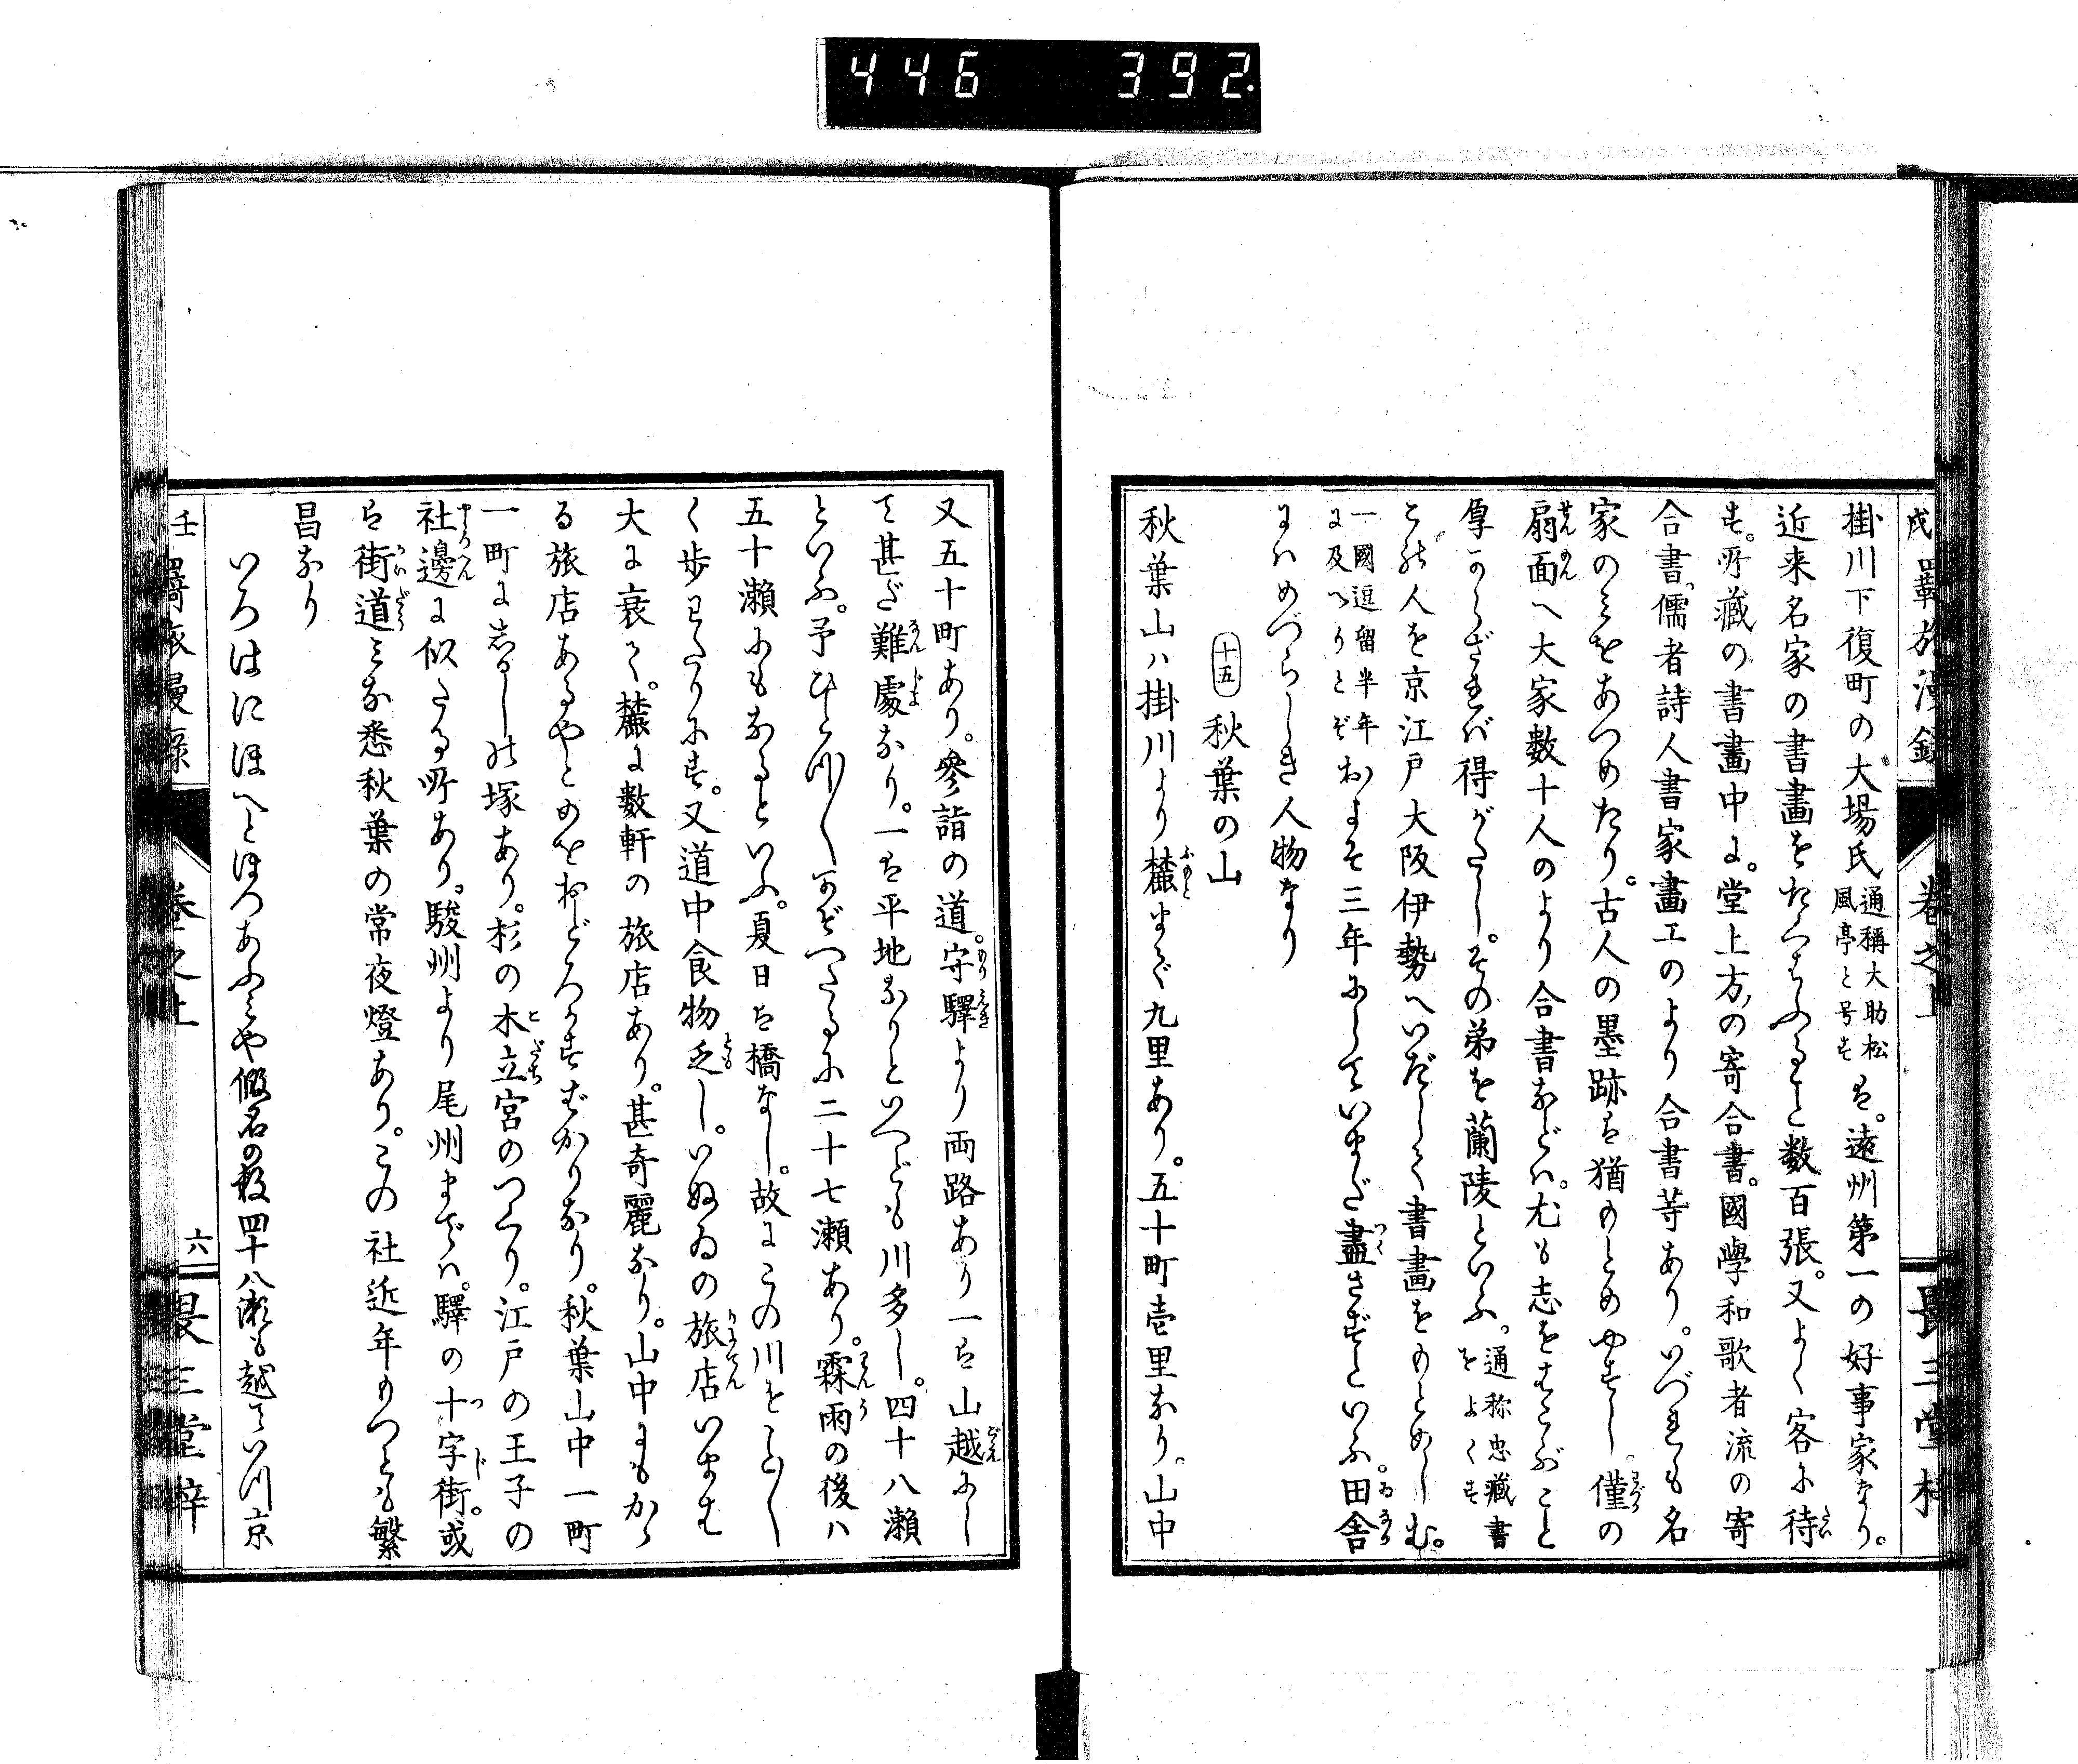 446 392
戌 羈旅漫録 巻之上 畏三堂梓
掛川下復町の大場氏通稱大助松
風亭と号すは。遠州第一の好事家なり。
近来名家の書畫をたくはふること数百張。又よく客に待
す。所藏の書畫中に。堂上方の寄合書。國學和歌者流の寄
合書。儒者詩人書家畫工のより合書等あり。いづれも名
家のみをあつめたり。古人の墨跡は猶もとめやすし。僅の
扇面へ大家数十人のより合書などは。尤も志をはこぶこと
厚からざれば得がたし。その弟を蘭陵といふ。通称忠藏書
をよくす
この人を京江戸大阪伊勢へいだして書畫をもとめしむ。
一國逗留半年
に及へりとぞおよそ三年にしていまだ盡さずといふ。田舎
にはめづらしき人物なり
十五 秋葉の山
秋葉山ハ掛川より麓まで九里あり。五十町壱里なり。山中
又五十町あり。參詣の道。守驛より両路あり一は山越にし
て甚だ難處なり。一は平地なりといへども川多し。四十八瀬
といふ。予ひとつ〳〵かぞへたるに二十七瀬あり。霖雨の後ハ
五十瀬にもなるといふ。夏日は橋なし。故にこの川をこと〴〵
く歩わたりにす。又道中食物乏し。いぬゐの旅店いまむ
大に衰ふ。麓に數軒の旅店あり。甚奇麗なり。山中にもかゝ
る旅店あるやとめをおどろかすばかりなり。秋葉山中一町
一町にしるしの塚あり。杉の木立宮のつくり。江戸の王子の
社邊に似たる所あり。駿州より尾州までハ。驛の十字街。或
は街道みな悉秋葉の常夜燈あり。この社近年もつとも繁
昌なり
いろはにほへとほつあふみや假名の数四十八瀬も越ていつ京
壬 羈旅漫録 巻之上 六 畏三堂梓